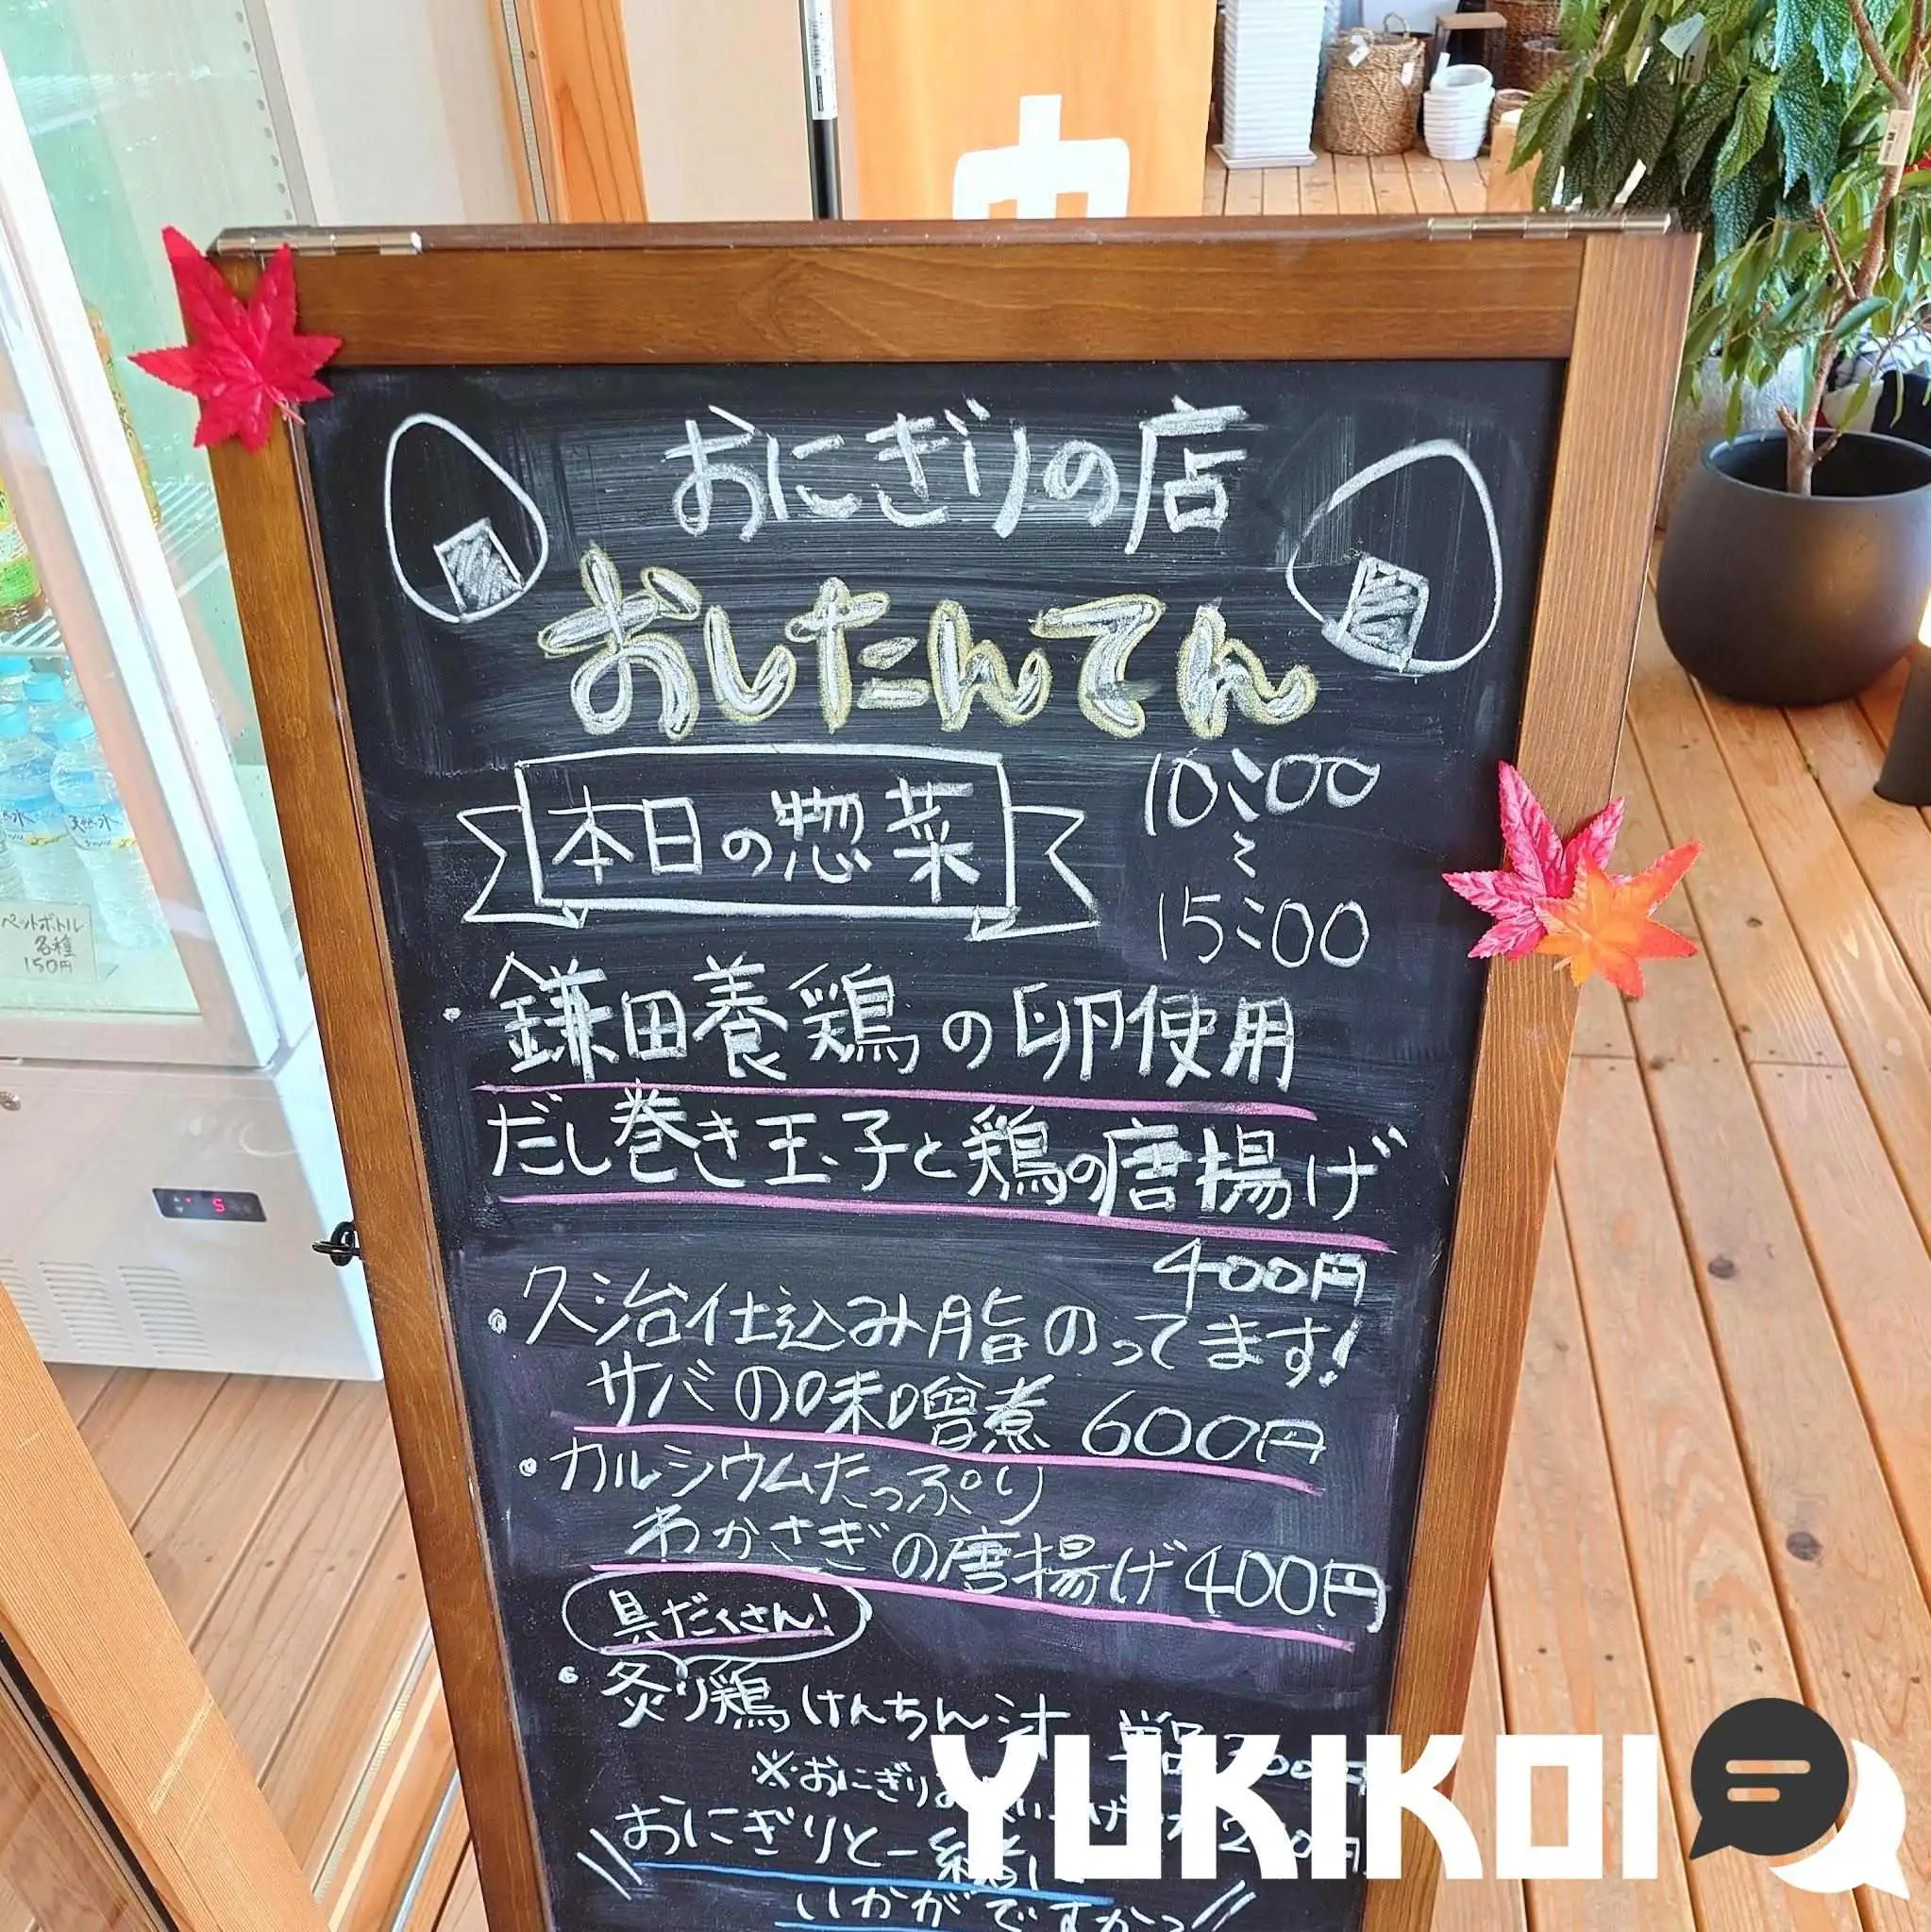 おにぎりの店
おしたんてん
本日の惣菜
10:00
〜
15:00
・鎌田養鶏の卵使用
だし巻き玉子と鶏の唐揚げ
400円
・久治仕込み脂のってます!
サバの味噌煮 600円
・カルシウムたっぷり
わかさぎの唐揚げ400円
具だくさん!
・炙り鶏けんちん汁 単品300円
※おにぎりお
おにぎりと一緒に
いかがですか
ペットボトル
各種
150円
天然水
YUKIKOI